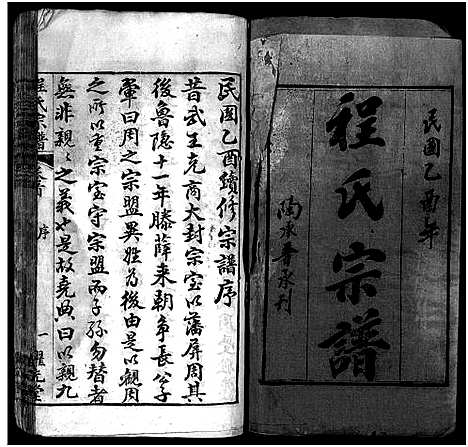 民国乙酉年
程氏宗譜
陶承香承刊
民国乙酉續修宗譜序
昔武王克商大封宗室以藩屏周其
後魯隐十一年滕薛来朝争長公子
翬曰周之宗盟異姓為後由是以觀周
之所以重宗室守宗盟而子孫勿替者
無非親〻之義也是故堯典曰以親九
程氏宗譜
卷首
序
一